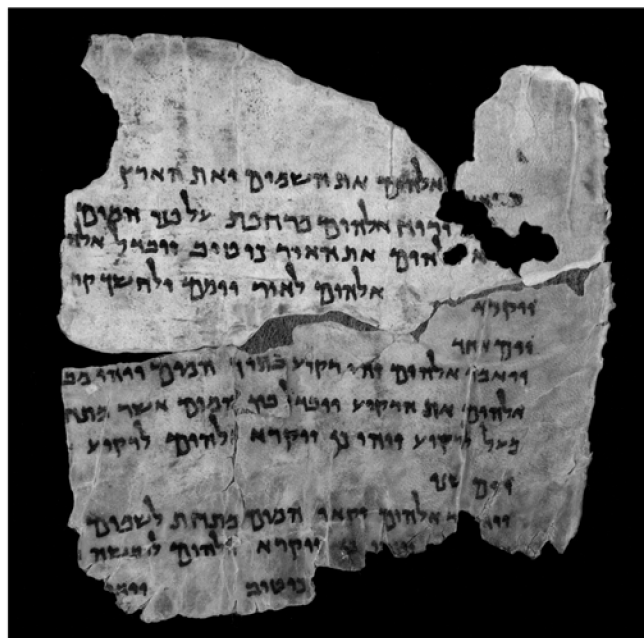 אלהים את השמים ואת הארץ
ורוח אלהים מרחפת על פני המים
אלהים את האור כי טוב ויבדל אלה
אלהים לאור יומם ולחשך קר
ויקרא
יום אחד
ויאמר אלהים יהי רקיע בתוך המים ויהי מב
אלהים את הרקיע ויבדל בין המים אשר מתח
מעל לרקיע ויהי כן ויקרא אלהים לרקיע
יום שני
אלהים יקאו המים מתחת לשמים
כן ויקרא אלהים ליבשה
כי טוב